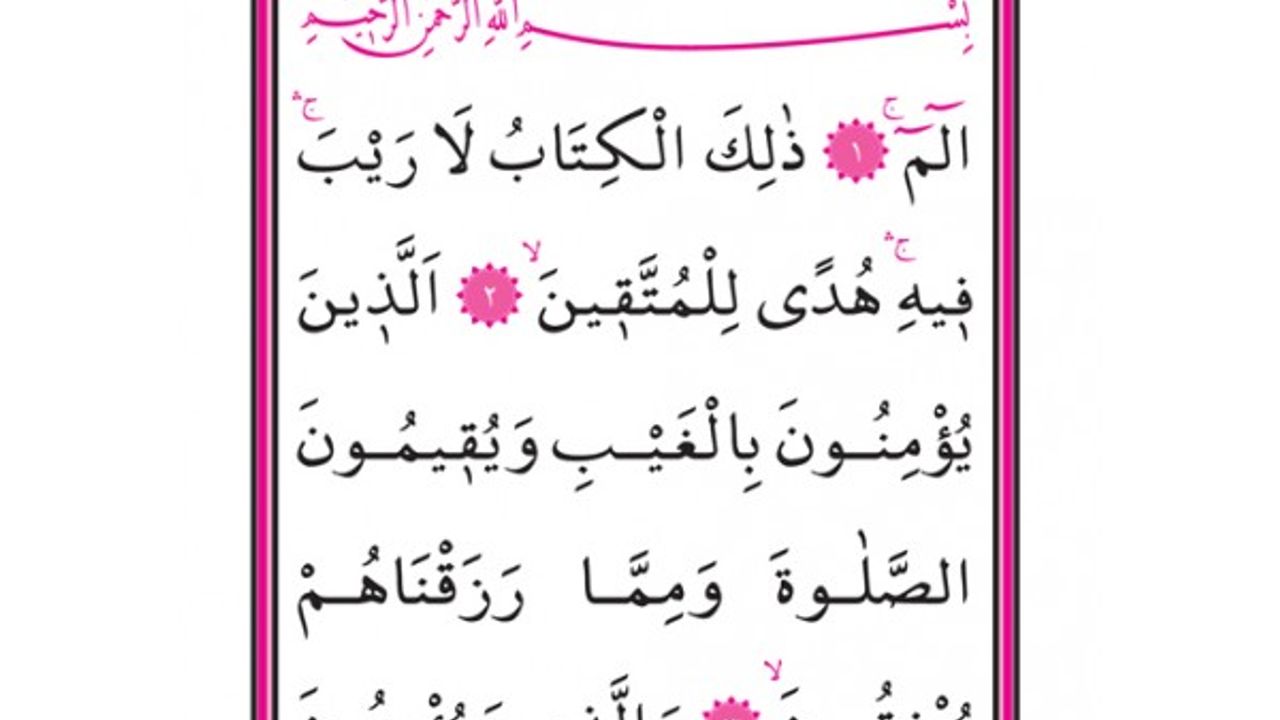 بِسْــــمِ اللّٰهِ الرَّحْمٰنِ الرَّحٖيمِ
الٓمٓ ۚ ١ ذٰلِكَ الْكِتَابُ لَا رَيْبَ ۚۛ
فٖيهِ ۚۛ هُدًى لِلْمُتَّقٖينَ ۙ ٢ اَلَّذٖينَ
يُؤْمِنُـونَ بِالْغَيْـبِ وَيُقٖيمُـونَ
الصَّلٰـوةَ وَمِمَّـا رَزَقْنَاهُـمْ